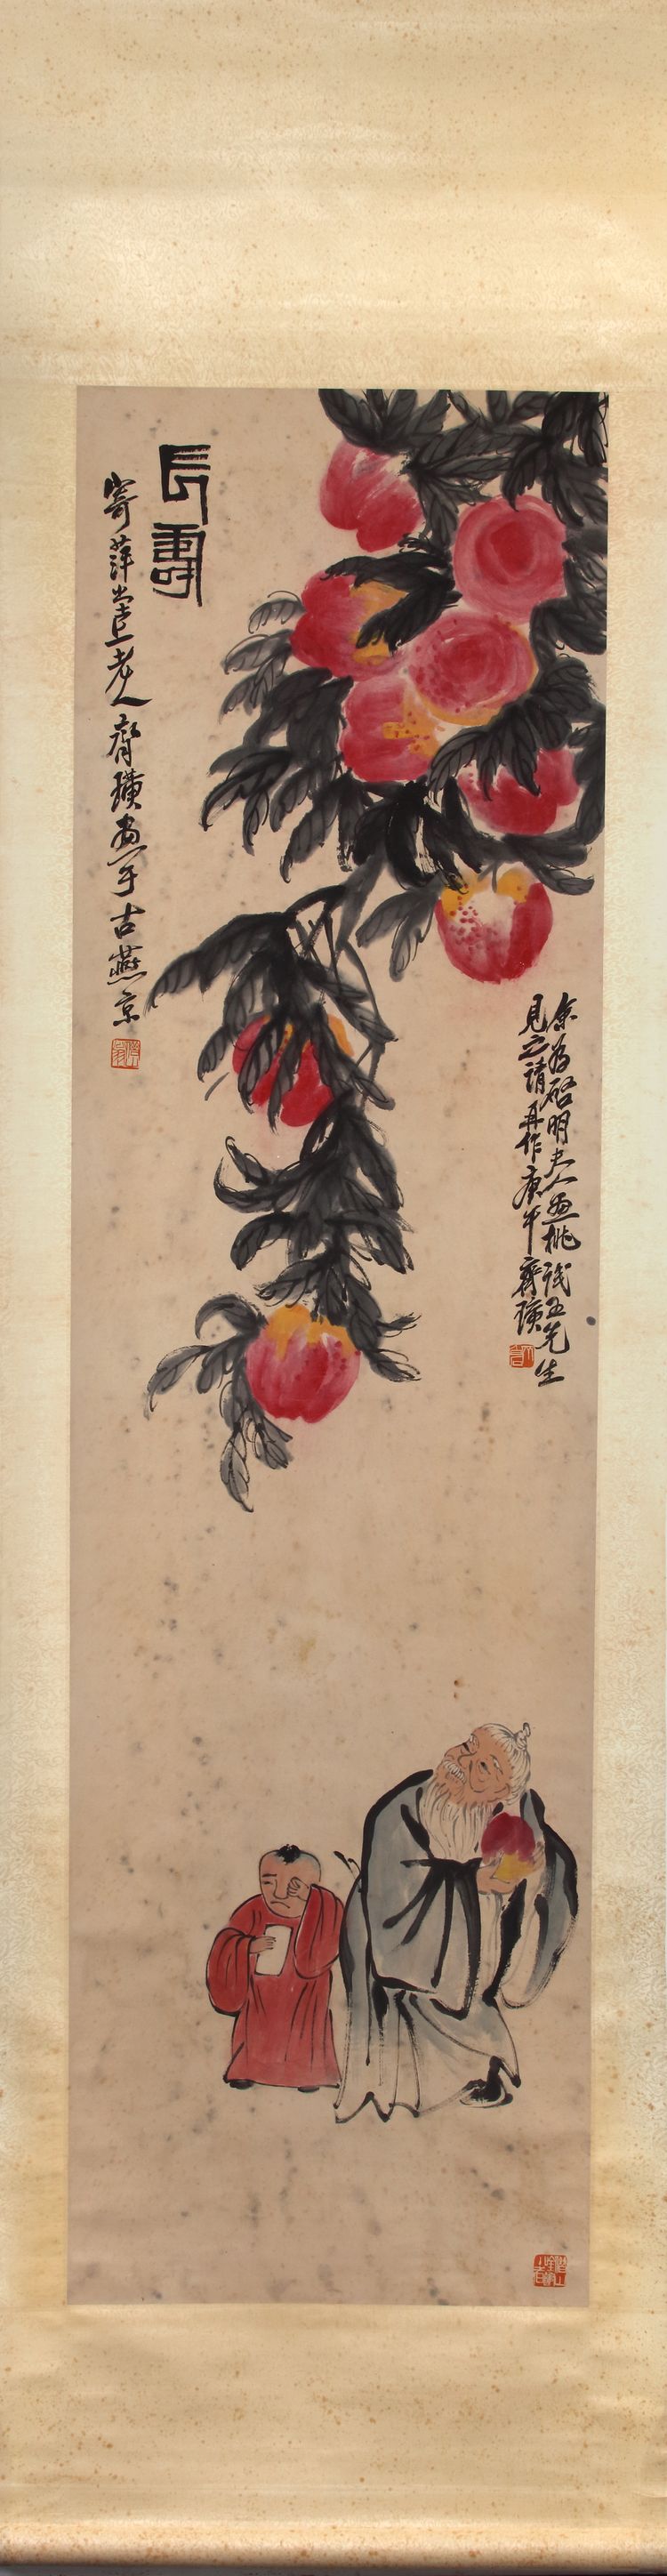 長壽
寄萍堂上老人齊璜畫于古燕京
余为啓明夫人畫桃誠五先生
見之請再作庚午齊璜